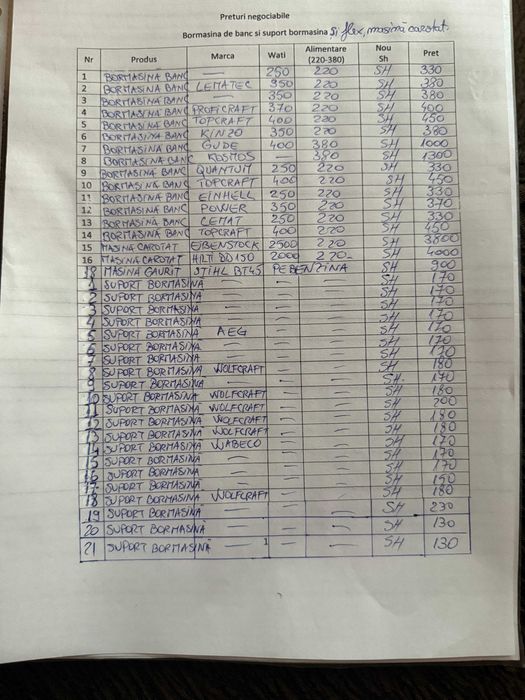 Preturi negociabile
Bormasina de banc si suport bormasina și flex, masină carotat.
Nr Produs Marca Wati Alimentare (220-380) Nou Sh Pret
1 BORMASINA BANC — 250 220 SH 330
2 BORMASINA BANC LEMATEC 350 220 SH 380
3 BORMASINA BANC — 350 220 SH 380
4 BORMASINA BANC PROFICRAFT 370 220 SH 400
5 BORMASINA BANC TOPCRAFT 400 220 SH 450
6 BORMASINA BANC KINZO 350 220 SH 380
7 BORMASINA BANC GUDE 400 380 SH 1000
8 BORMASINA BANC KOSMOS — 380 SH 1300
9 BORMASINA BANC QUANTUM 250 220 SH 330
10 BORMASINA BANC TOPCRAFT 400 220 SH 450
11 BORMASINA BANC EINHELL 250 220 SH 330
12 BORMASINA BANC POWER 350 220 SH 370
13 BORMASINA BANC LEMAT 250 220 SH 330
14 BORMASINA BANC TOPCRAFT 400 220 SH 450
15 MASINA CAROTAT EIBENSTOCK 2500 220 SH 3800
16 MASINA CAROTAT HILTI DD150 2000 220 SH 4000
18 MASINA GAURIT STIHL BT45 PE BENZINA SH 900
1 SUPORT BORMASINA — — — SH 170
2 SUPORT BORMASINA — — — SH 170
3 SUPORT BORMASINA — — — SH 170
4 SUPORT BORMASINA — — — SH 170
5 SUPORT BORMASINA AEG — — SH 170
6 SUPORT BORMASINA — — — SH 170
7 SUPORT BORMASINA — — — SH 170
8 SUPORT BORMASINA WOLFCRAFT — — SH 180
9 SUPORT BORMASINA — — — SH. 170
10 SUPORT BORMASINA WOLFCRAFT — — SH 180
11 SUPORT BORMASINA WOLFCRAFT — — SH 200
12 SUPORT BORMASINA WOLFCRAFT — — SH 180
13 SUPORT BORMASINA WOLFCRAFT — — SH 180
14 SUPORT BORMASINA WABECO — — SH 170
15 SUPORT BORMASINA — — — SH 170
16 SUPORT BORMASINA — — — SH 170
17 SUPORT BORMASINA — — — SH 150
18 SUPORT BORMASINA WOLFCRAFT — — SH 180
19 SUPORT BORMASINA — — — SH 230
20 SUPORT BORMASINA — — — SH 130
21 SUPORT BORMASINĂ — — — SH 130
1